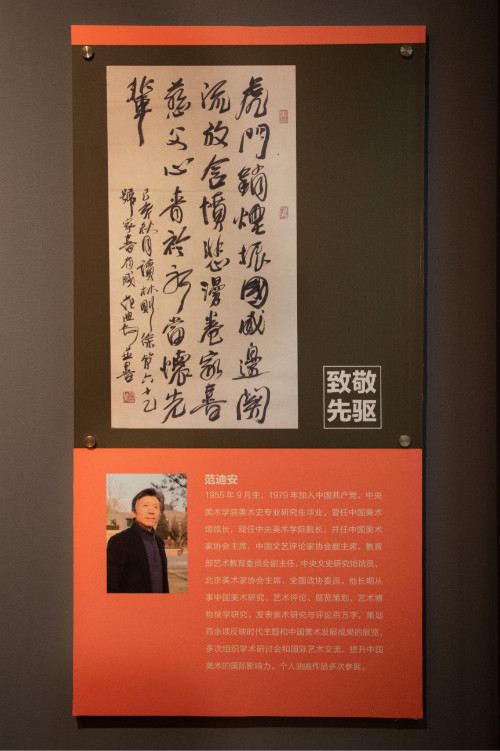 虎門銷煙振國威邊関
流放含憤悲漫卷家書
慈父心當懷先
輩
己亥秋月讀林則徐第六十
號家書有感 范迪安並書
致敬
先驱
范迪安
1955年9月生,1979年加入中国共产党,中央
美术学院美术史专业研究生毕业,曾任中国美术
馆馆长,现任中央美术学院院长,并任中国美术
家协会主席,中国文艺评论家协会副主席,教育
部艺术教育委员会副主任,中央文史研究馆馆员,
北京美术家协会主席,全国政协委员。他长期从
事中国美术研究、艺术评论、展览策划、艺术博
物馆学研究。发表美术研究与评论百万字,策划
百余项反映时代主题和中国美术发展成果的展览,
多次组织学术研讨会和国际艺术交流,提升中国
美术的国际影响力。个人油画作品多次参展。